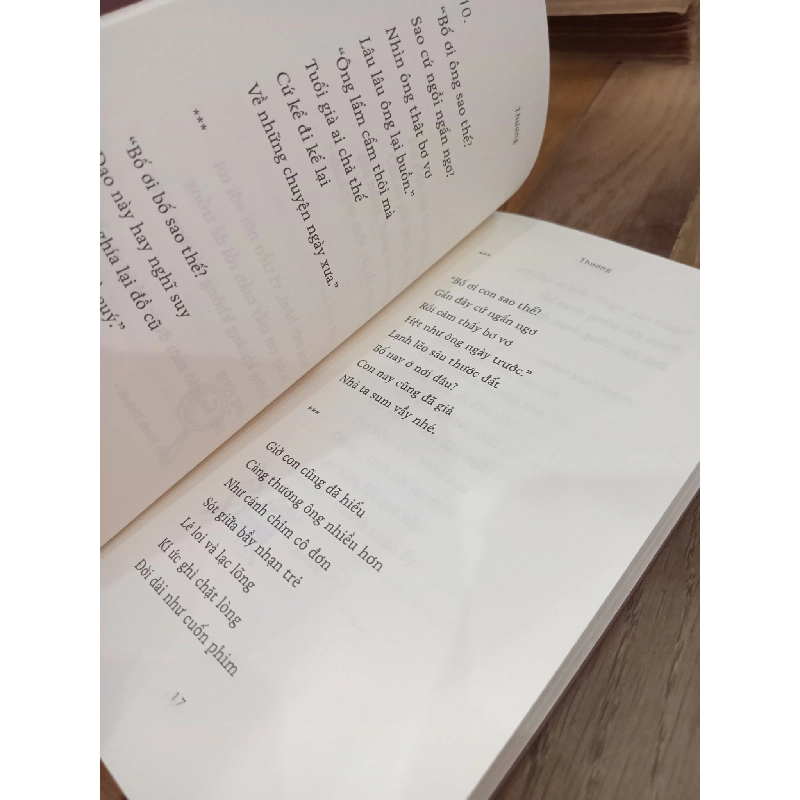 Thương
10.
"Bố ơi ông sao thế?
Sao cứ ngồi ngẩn ngơ!
Nhìn ông thật bơ vơ
Lâu lâu ông lại buồn."
"Ông lẩm cẩm thôi mà
Tuổi già ai chả thế
Cứ kể đi kể lại
Về những chuyện ngày xưa."
***
"Bố ơi bố sao thế?
Dạo này hay nghĩ suy
nghĩa lại đồ cũ
quý."
Thương
***
"Bố ơi con sao thế?
Gần đây cứ ngẩn ngơ
Rồi cảm thấy bơ vơ
Hệt như ông ngày trước."
Lạnh lẽo sâu thước đất
Bố nay ở nơi đâu?
Con nay cũng đã già
Nhà ta sum vầy nhé.
***
Giờ con cũng đã hiểu
Càng thương ông nhiều hơn
Như cánh chim cô đơn
Sót giữa bầy nhạn trẻ
Lẻ loi và lạc lõng
Kí ức ghì chặt lòng
Đời dài như cuốn phim
17